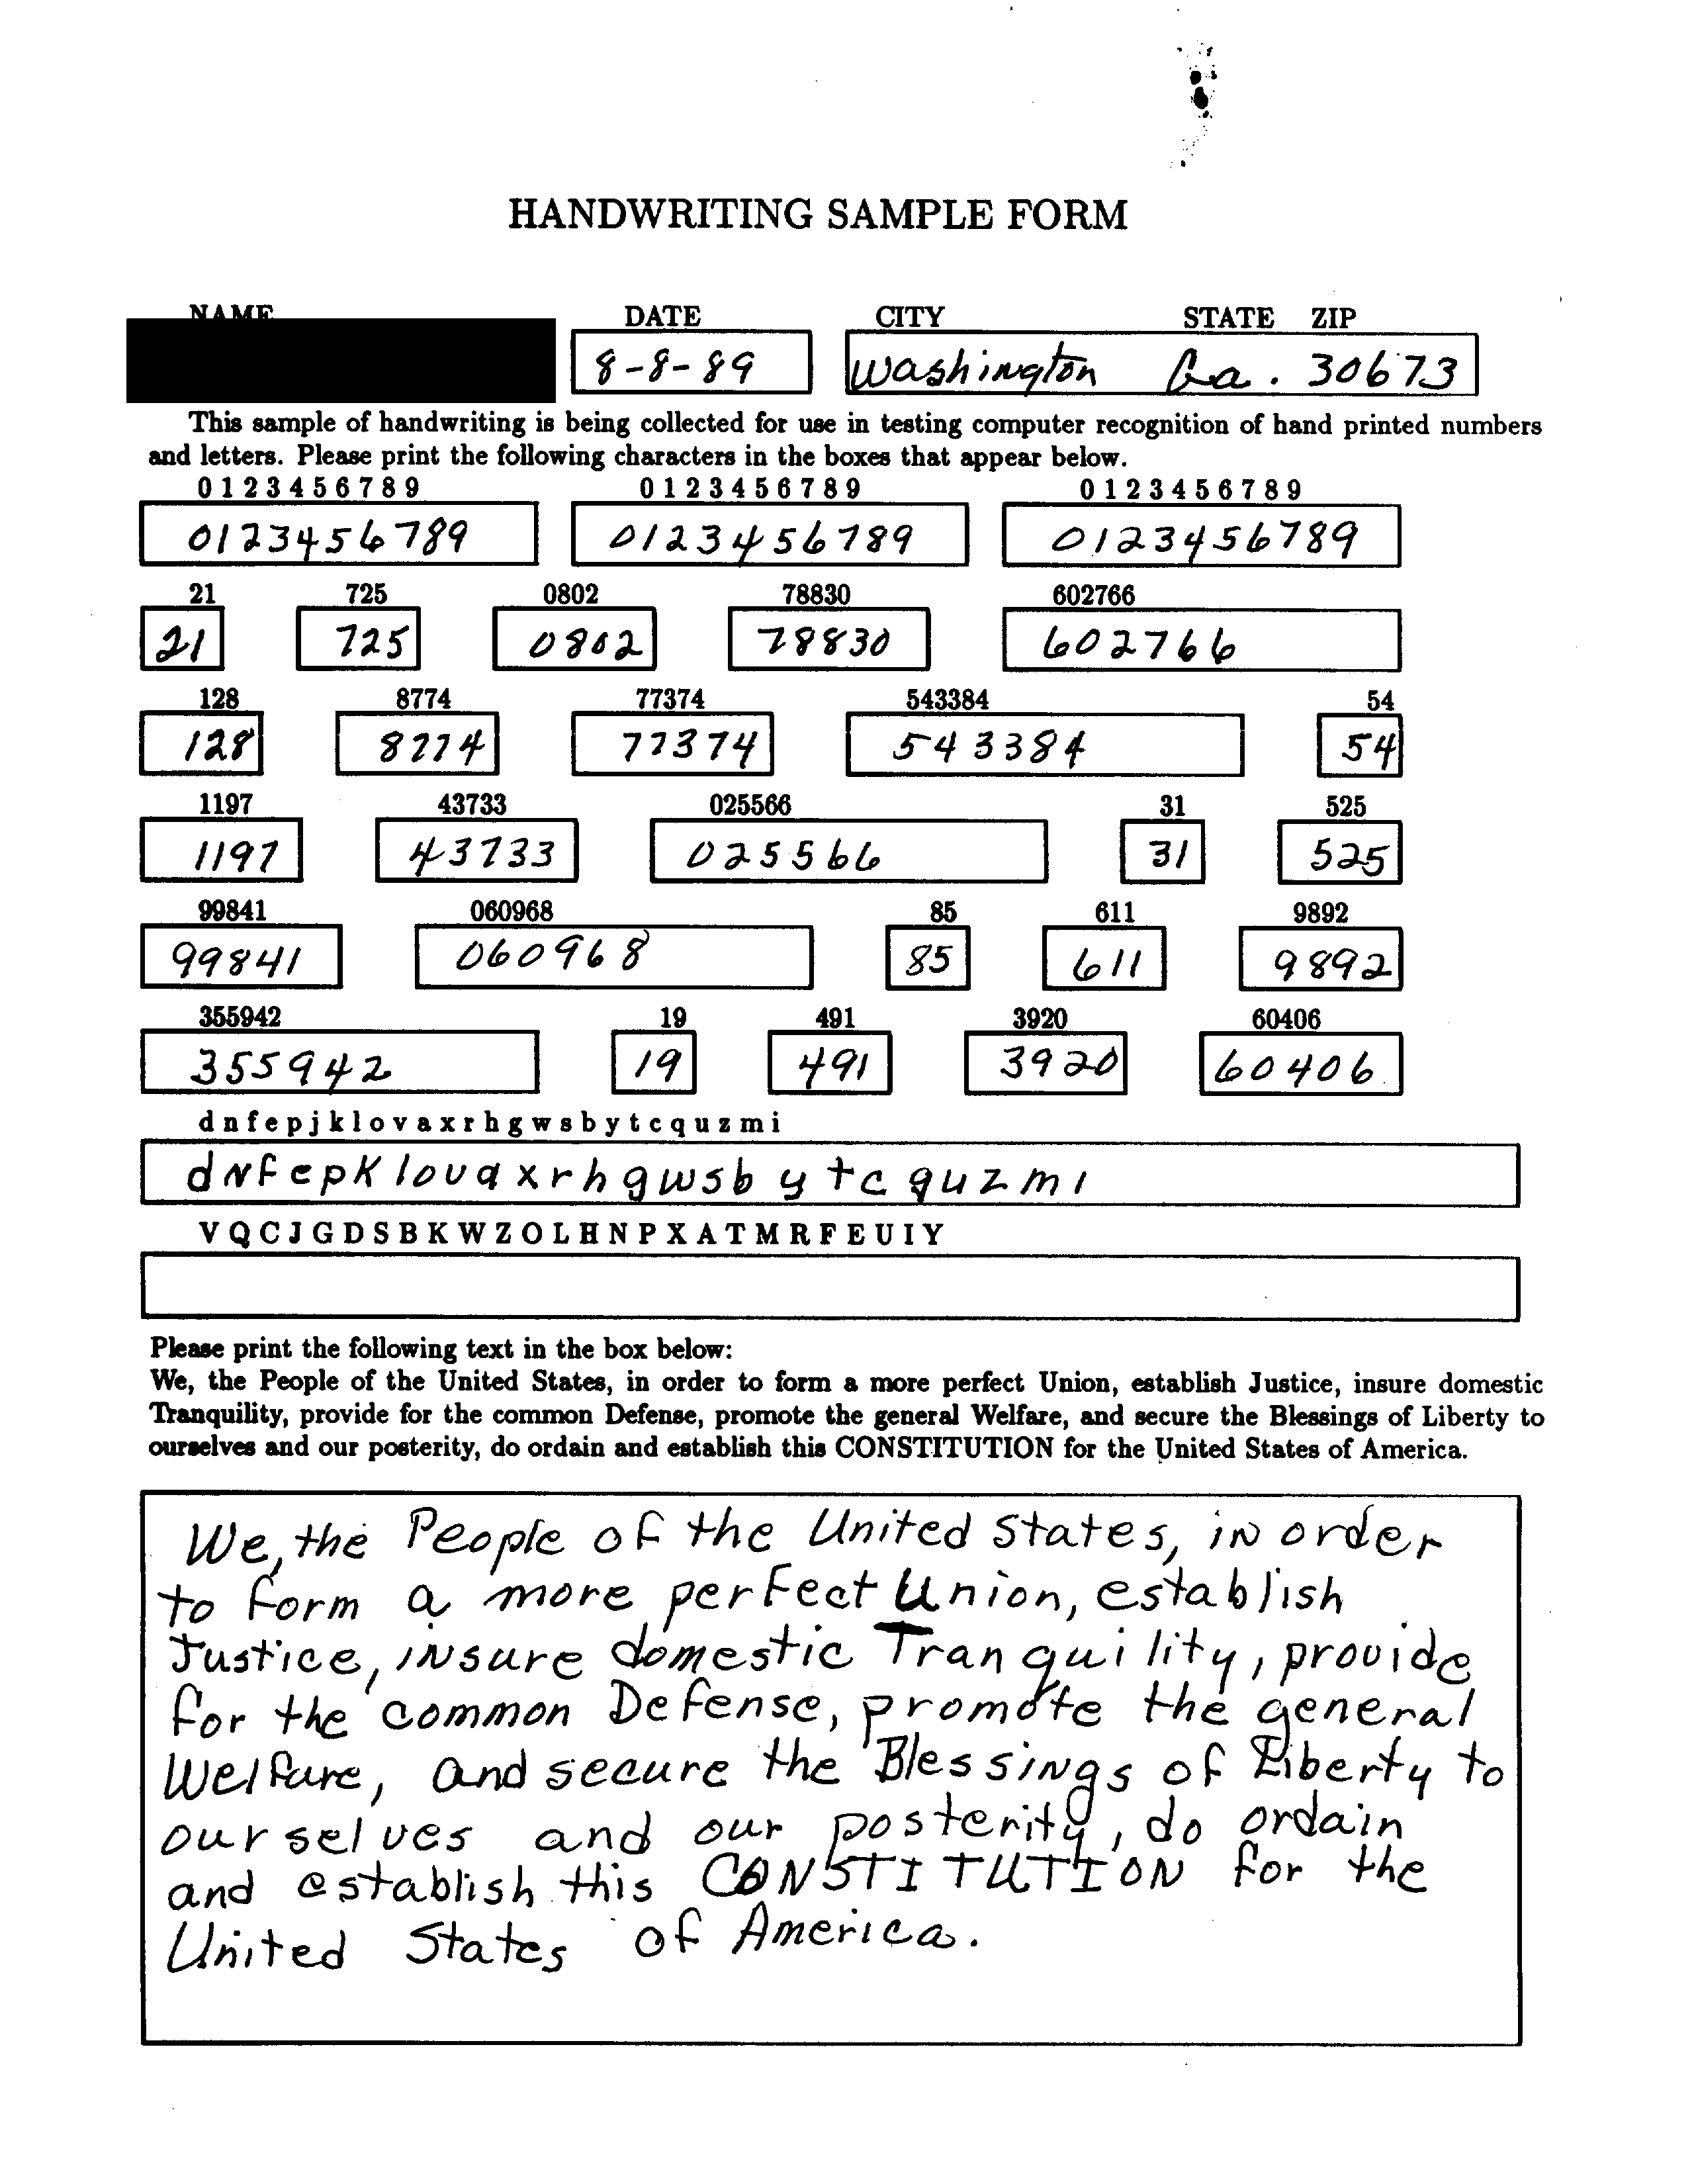 HANDWRITING SAMPLE FORM
NAME DATE CITY STATE ZIP
8-8-89 Washington Ga. 30673
This sample of handwriting is being collected for use in testing computer recognition of hand printed numbers
and letters. Please print the following characters in the boxes that appear below.
0 1 2 3 4 5 6 7 8 9 0 1 2 3 4 5 6 7 8 9 0 1 2 3 4 5 6 7 8 9
0123456789 0123456789 0123456789
21 725 0802 78830 602766
21 725 0802 78830 602766
128 8774 77374 543384 54
128 8774 77374 543384 54
1197 43733 025566 31 525
1197 43733 025566 31 525
99841 060968 85 611 9892
99841 060968 85 611 9892
355942 19 491 3920 60406
355942 19 491 3920 60406
d n f e p j k l o v a x r h g w s b y t c q u z m i
dNfepKlovaxrhgwsbytcquzmi
V Q C J G D S B K W Z O L H N P X A T M R F E U I Y
Please print the following text in the box below:
We, the People of the United States, in order to form a more perfect Union, establish Justice, insure domestic
Tranquility, provide for the common Defense, promote the general Welfare, and secure the Blessings of Liberty to
ourselves and our posterity, do ordain and establish this CONSTITUTION for the United States of America.
We, the People of the United States, in order
to form a more perfect Union, establish
Justice, insure domestic Tranquility, provide
for the common Defense, promote the general
Welfare, and secure the Blessings of Liberty to
ourselves and our posterity, do ordain
and establish this CONSTITUTION for the
United States of America.